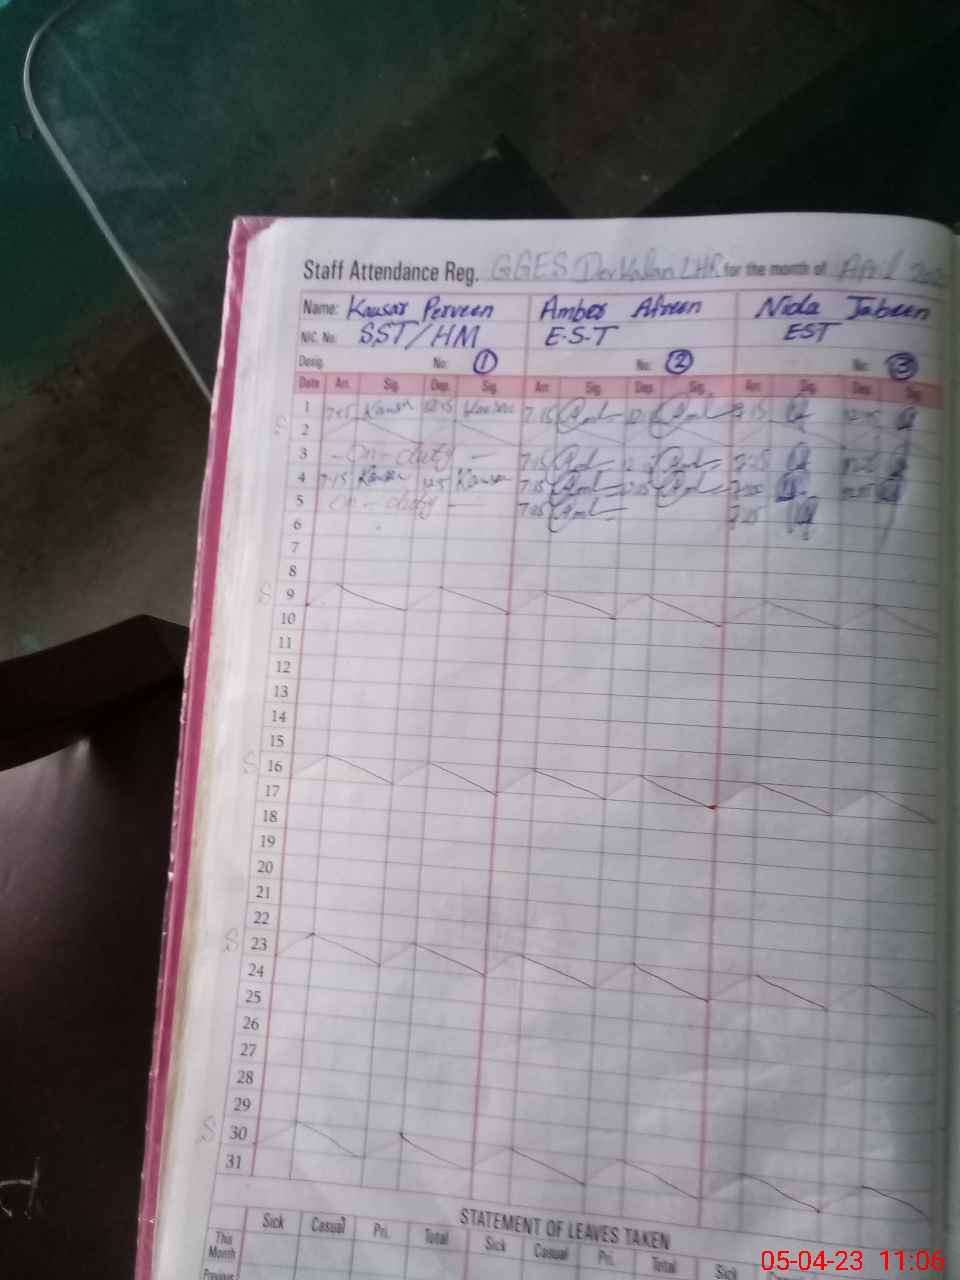 Staff Attendance Reg. GGES Dev Kalan LHR for the month of April
Name: Kausar Perveen Amber Afreen Nida Jabeen
NIC. No. SST/HM E.S.T EST
Desig. No: 1 No: 2 No: 3
Date Arr. Sig. Dep. Sig. Arr. Sig. Dep. Sig. Arr. Sig. Dep. Sig.
1 7:15 Kausar 12:15 Kausar 7:15 7:15
S 2
3 - On - duty - 7:15
4 7:15 Kausar Kausar 7:15
5 on - duty -
6
7
8
S 9
10
11
12
13
14
15
S 16
17
18
19
20
21
22
S 23
24
25
26
27
28
29
S 30
31
STATEMENT OF LEAVES TAKEN
Sick Casual Pri. Total Sick Casual Pri. Total Sick
This
Month
Previous
05-04-23 11:06